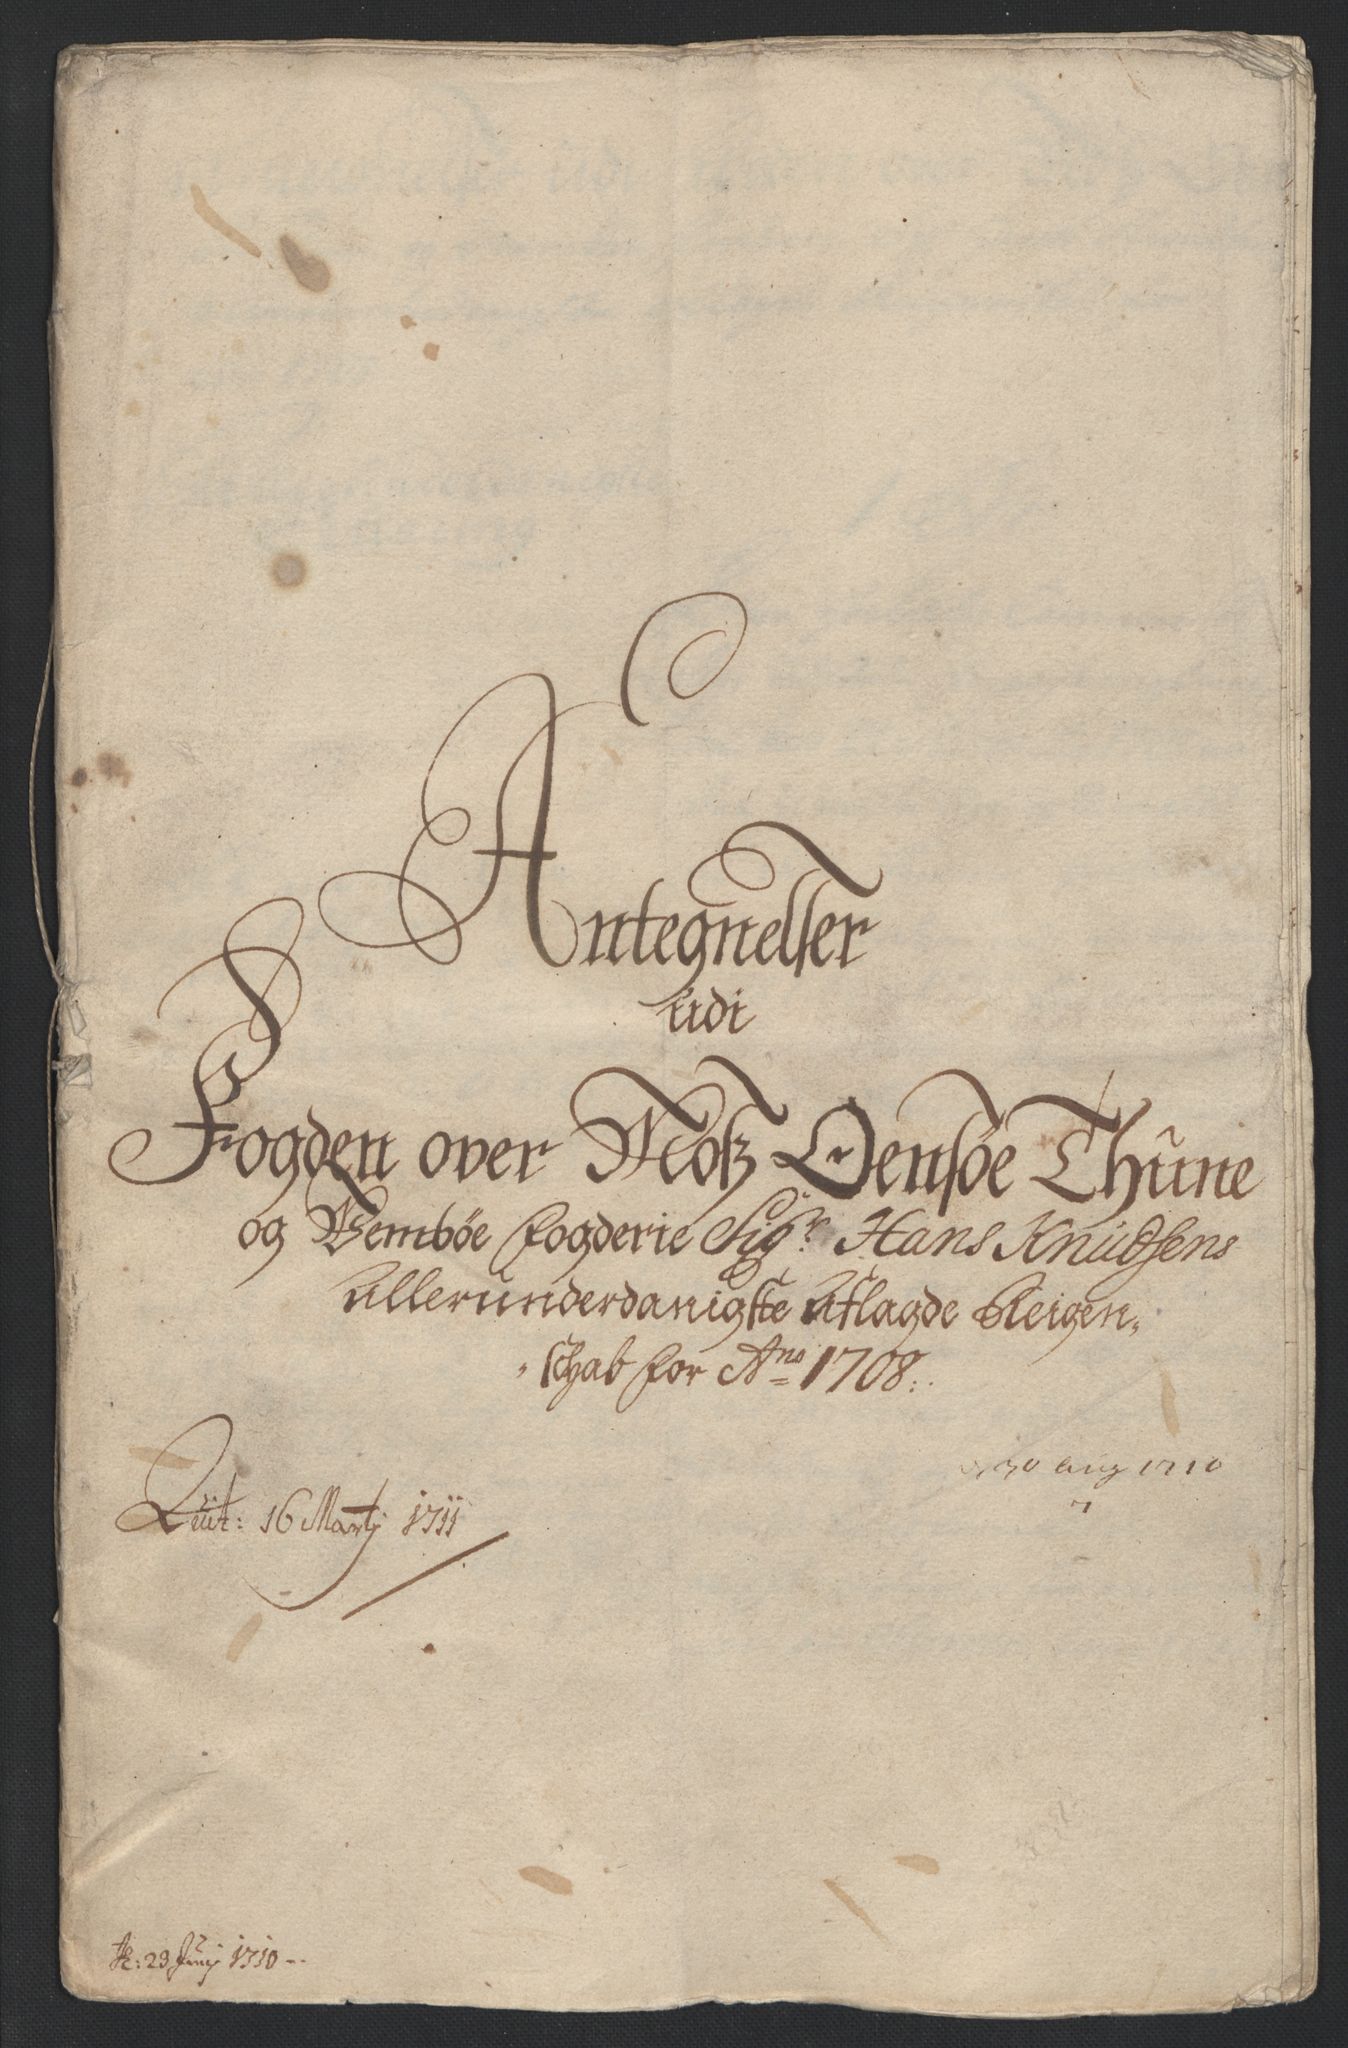 Antegnelser
udi
Fogden over Moss Oensøe Thune
og Wembøe fogderie Sigr. Hans Knudsens
allerunderdanigste Aflagde Reigen-
schab for Ano 1708.
30 Aug 1710
Qvit: 16 Martj 1711
23 Junj 1710